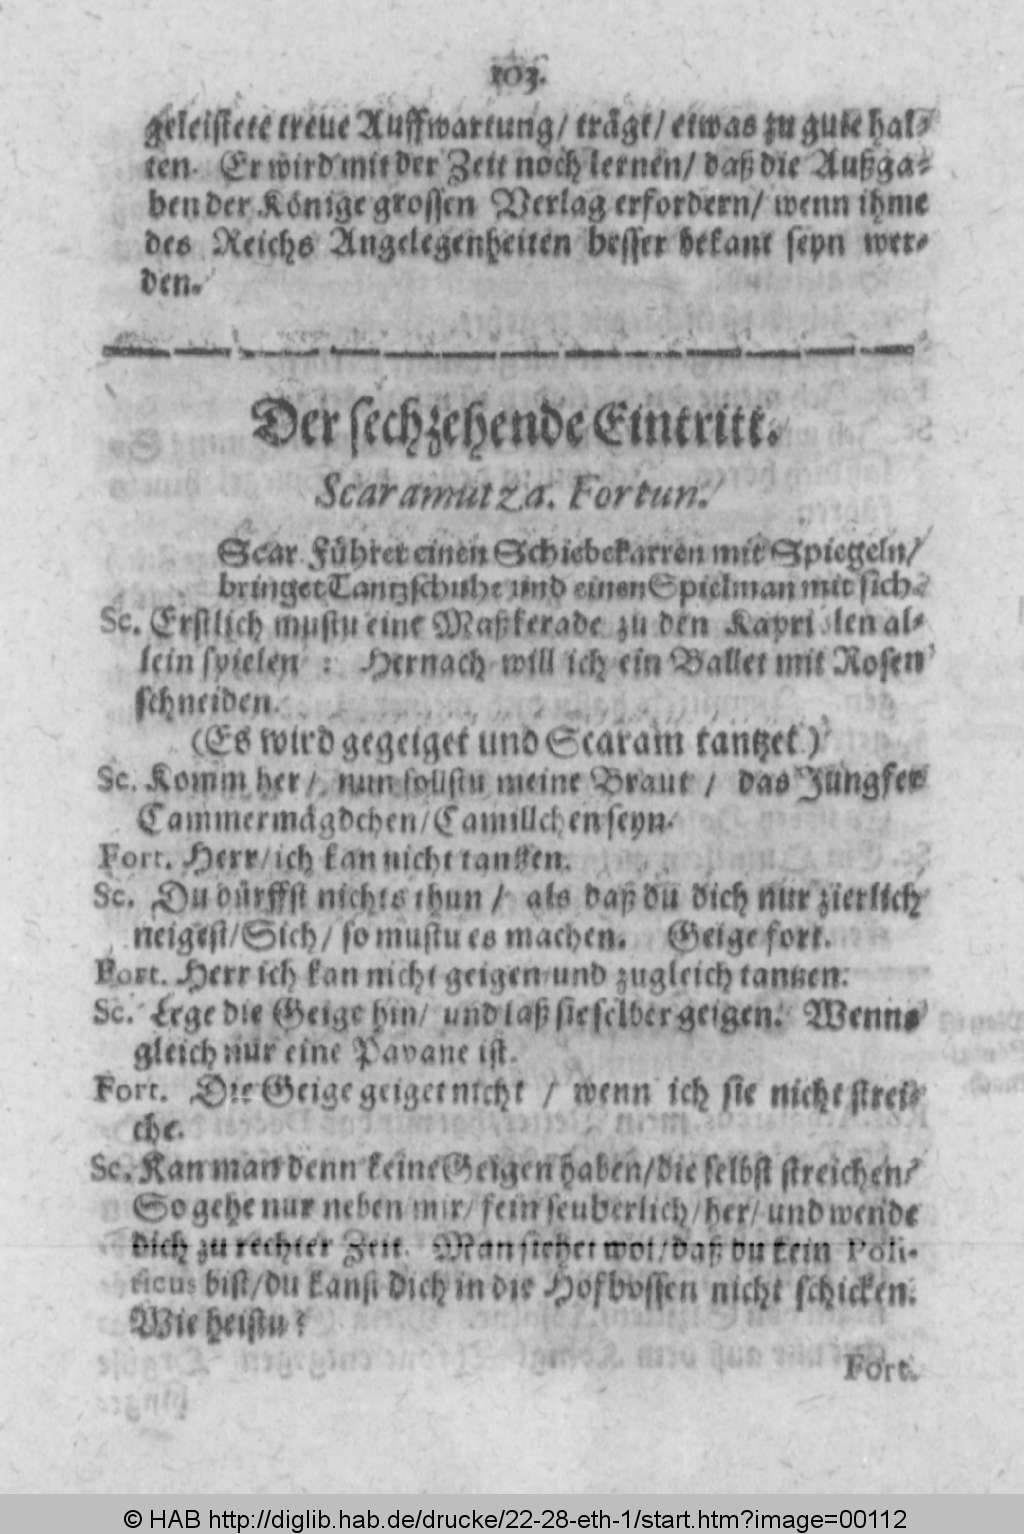 103.
geleistete treue Auffwartung/ trägt/ etwas zu gute hal-
ten. Er wird mit der Zeit noch lernen/ daß die Außga-
ben der Könige grossen Verlag erfordern/ wenn ihme
des Reichs Angelegenheiten besser bekant seyn wer-
den.
Der sechzehende Eintritt.
Scaramutza. Fortun.
Scar Führet einen Schiebekarren mit Spiegeln/
bringet Tantzschuhe und einen Spielman mit sich.
Sc. Erstlich mustu eine Maßkerade zu den Kapri olen al-
lein spielen : Hernach will ich ein Ballet mit Rosen
schneiden.
(Es wird gegeiget und Scaram tantzet.)
Sc. Komm her/ nun sollstu meine Braut / das Jungfer
Cammermägdchen/ Camillchen seyn.
Fort. Herr/ ich kan nicht tantzen.
Sc. Du dürffst nichts thun / als daß du dich nur zierlich
neigest/ Sich/ so mustu es machen. Geige fort.
Fort. Herr ich kan nicht geigen und zugleich tantzen.
Sc. Lege die Geige hin/ und laß sie selber geigen. Wenns
gleich nur eine Pavane ist.
Fort. Die Geige geiget nicht / wenn ich sie nicht strei-
che.
Sc. Kan man denn keine Geigen haben/ die selbst streichen/
So gehe nur neben mir/ fein seuberlich/ her/ und wende
dich zu rechter Zeit. Man siehet wol/ daß du kein Poli-
ticus bist/ du kanst dich in die Hofbossen nicht schicken.
Wie heistu?
Fort.
© HAB http://diglib.hab.de/drucke/22-28-eth-1/start.htm?image=00112